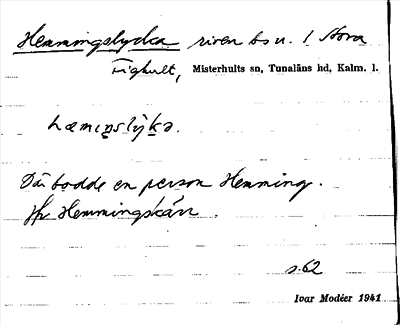 Hemmingslycka riven bs u. 1 Norra
Fighult, Misterhults sn, Tunaläns hd, Kalm. l.
hæmıŋslẏkə.
Där bodde en person Hemming.
Jfr Hemmingskärr.
s.62
Ivar Modéer 1941